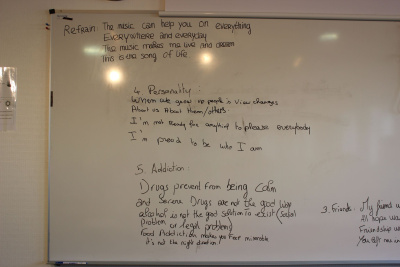 Refrain: The music can help you on everything
Everywhere and everyday
The music makes me live and dream
This is the song of life
4. Personality:
When we grow up people's view changes
About us About them/others.
I'm not ready for anything to please everybody
I'm proud to be who I am
5. Addiction:
Drugs prevent from being calm
and serene Drugs are not the good way
alcohol is not the good solution to
problem or legal problem)
Food Addiction makes you feel miserable
It's not the right direction!
3. Friends: My friend
Friendship